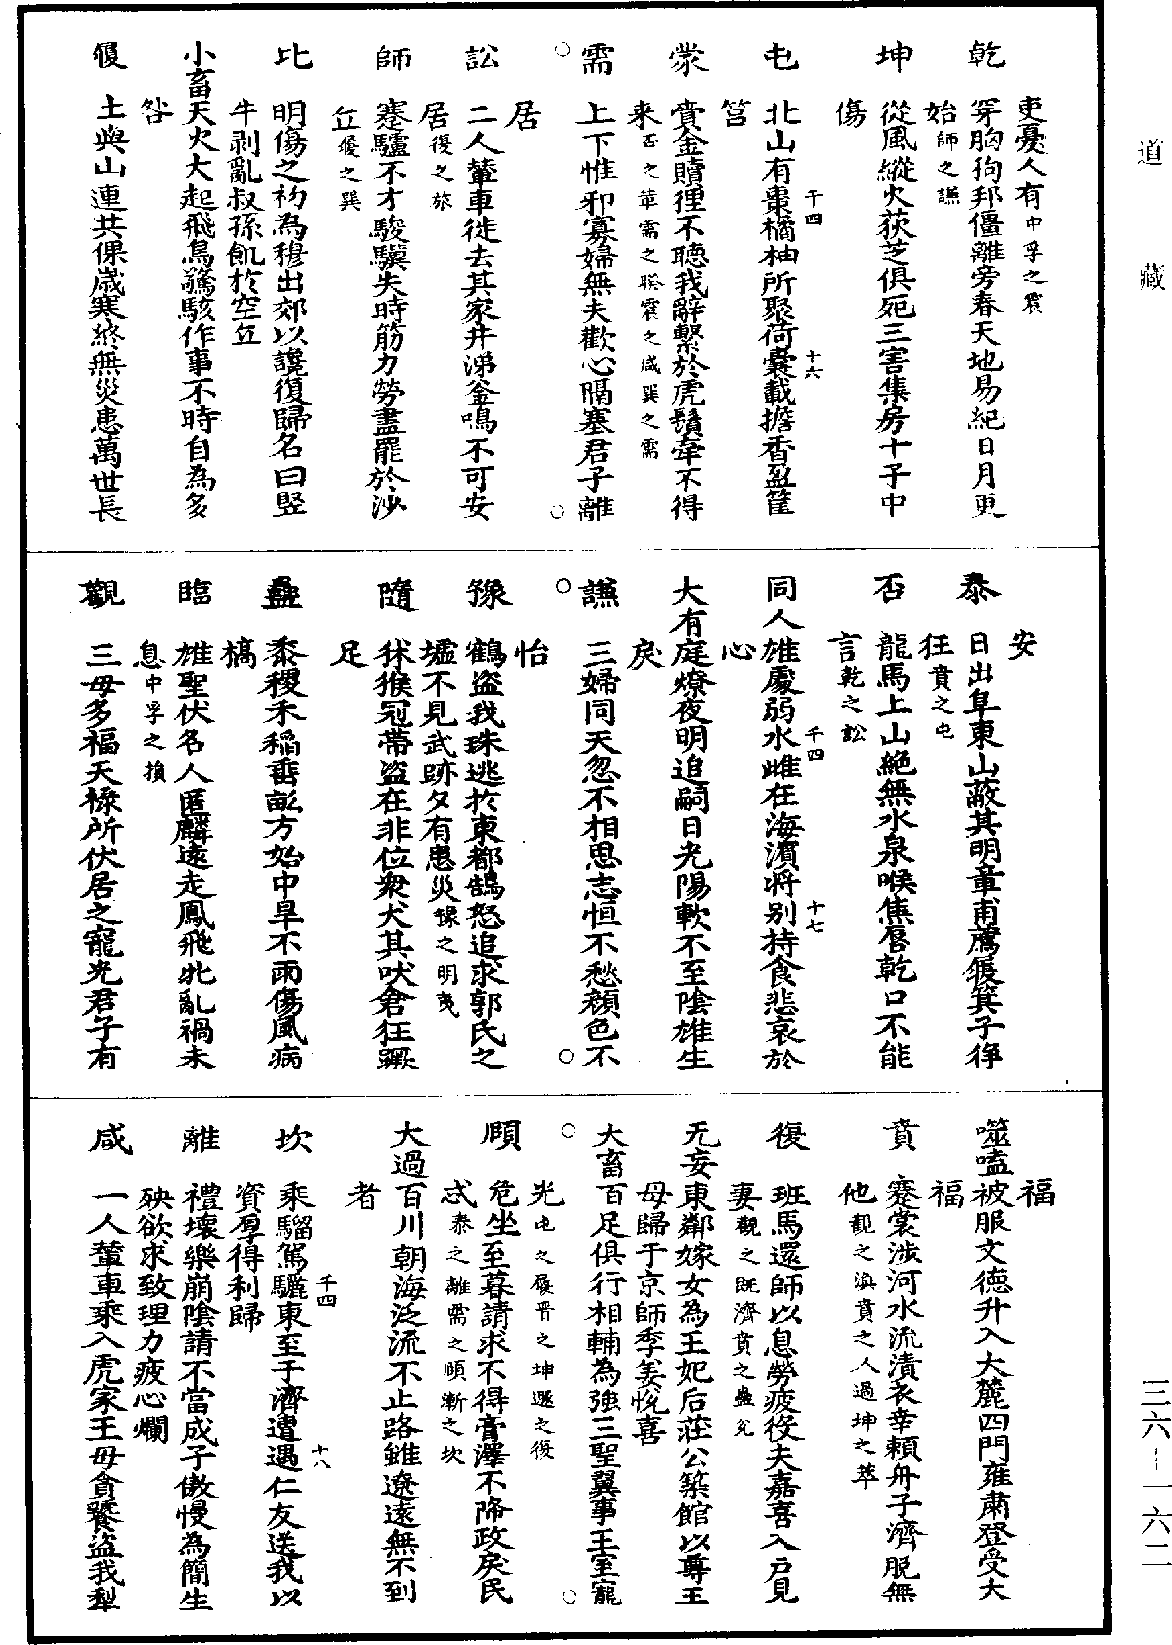 道藏
吏憂人有中孚之震
乾 穿胸狗邦僵離旁春天地易紀日月更
始師之謙
坤 從風縱火荻芝俱死三害集房十子中
傷
屯 北山有棗橘柚所聚荷囊載擔香盈筐
筥
蒙 賁金贖狸不聽我辭繫於虎鬚牽不得
來否之革需之睽震之咸巽之需
需 上下惟邪寡婦無夫歡心隔塞君子離
居
訟 二人輦車徙去其家井涕釜鳴不可安
居復之旅
師 蹇驢不才駿驥失時筋力勞盡罷於沙
丘履之巽
比 明傷之初為穆出郊以讒復歸名曰豎
牛剥亂叔孫飢於空丘
小畜 天火大起飛鳥驚駭作事不時自為多
咎
履 土與山連共保歲寒終無災患萬世長
千四 十六
安
泰 日出阜東山蔽其明章甫薦履箕子佯
狂賁之屯
否 龍馬上山絕無水泉喉焦唇乾口不能
言乾之訟
同人 雄處弱水雌在海濱將別持食悲哀於
心
大有 庭燎夜明追嗣日光陽軟不至陰雄生
戾
謙 三婦同天忽不相思志恒不愁顏色不
怡
豫 鶴盜我珠逃於東都鵠怒追求郭氏之
墟不見武跡夕有患災豫之明夷
隨 狝猴冠帶盜在非位衆犬其吠倉狂蹶
足
蠱 黍稷禾稻垂畝方始中旱不雨傷風病
槁
臨 雄聖伏名人匿麟遠走鳳飛北亂禍未
息中孚之損
觀 三母多福天祿所伏居之寵光君子有
千四 十七
福
噬嗑 被服文德升入大麓四門雍肅登受大
福
賁 蹇裳涉河水流漬衣幸賴舟子濟脫無
他觀之漸賁之人過坤之萃
復 班馬還師以息勞疲役夫嘉喜入戶見
妻觀之既濟賁之蠱兊
无妄 東鄰嫁女為王妃后莊公築館以尊王
母歸于京師季姜悅喜
大畜 百足俱行相輔為強三聖翼事王室寵
光屯之履晉之坤遯之復
頤 危坐至暮請求不得膏澤不降政戾民
忒泰之離需之頤漸之坎
大過 百川朝海泛流不止路雖遼遠無不到
者
坎 乘騮駕驪東至于濟遭遇仁友送我以
資厚得利歸
離 禮壞樂崩陰請不當成子傲慢為簡生
殃欲求致理力疲心爛
咸 一人輦車乘入虎家王母貪饕盜我犁
千四 十八
三六—一六二